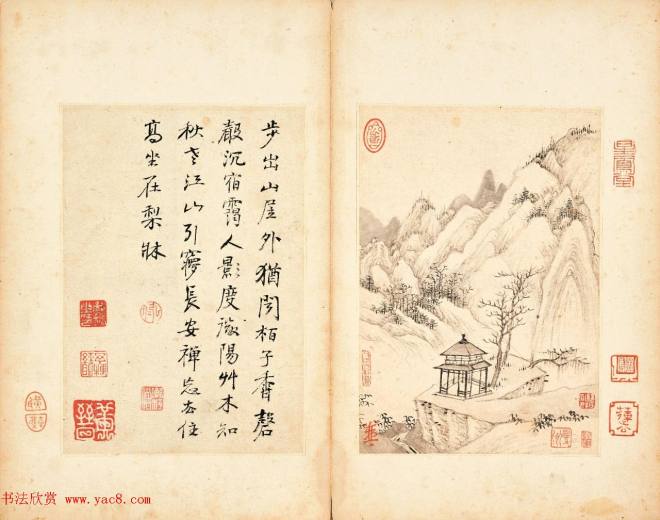 步出山屋外猶聞栢子香磬
聲沉宿靄人影度陽艸木知
秋老江山引夢長安禪忘去住
高坐在梨牀
书法欣赏 www.yac8.com